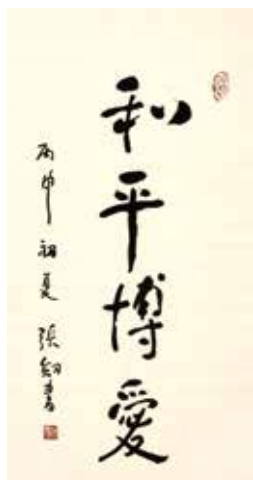 和平博愛
丙申初夏 張釗書